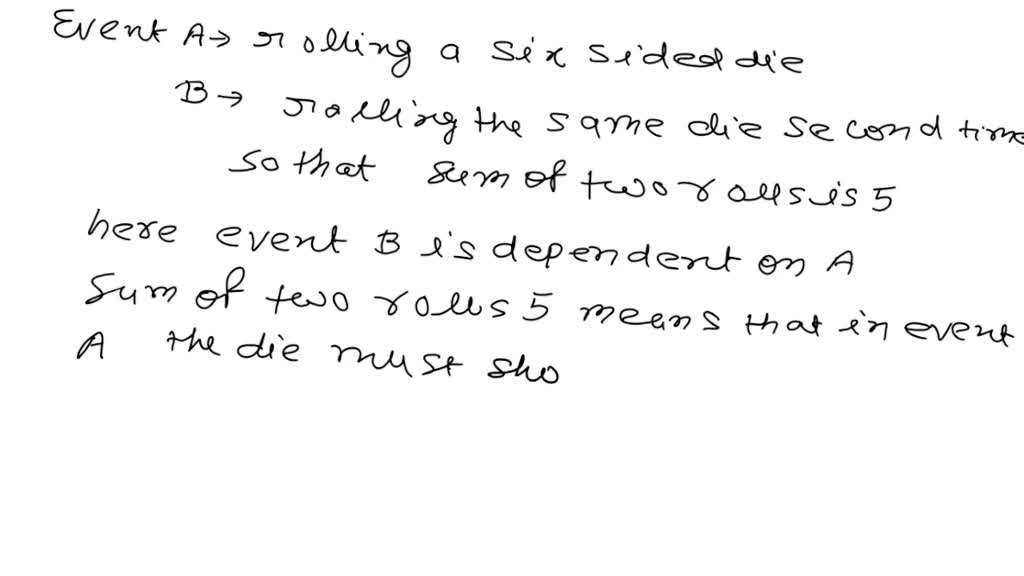 Event A→ rolling a six sided die
B→ rolling the same die second time
so that sum of two rolls is 5
here event B is dependent on A
Sum of two rolls 5 means that in event
A the die must sho